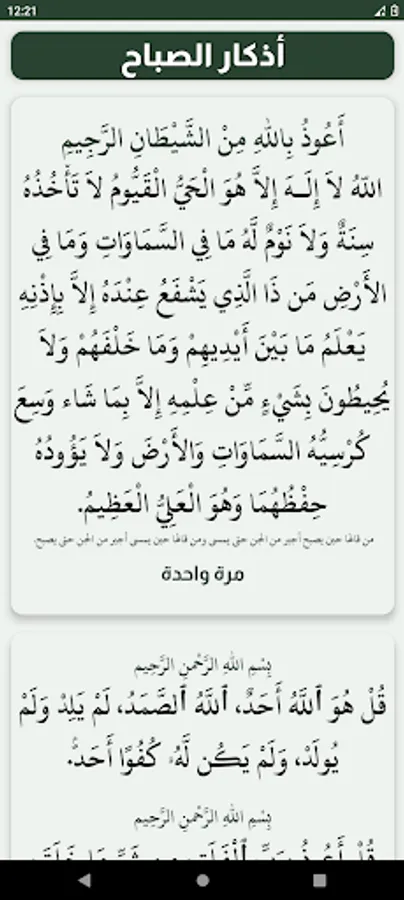 12:21
أذكار الصباح
أَعُوذُ بِاللهِ مِنْ الشَّيْطَانِ الرَّجِيمِ
اللّهُ لاَ إِلَـهَ إِلاَّ هُوَ الْحَيُّ الْقَيُّومُ لاَ تَأْخُذُهُ
سِنَةٌ وَلاَ نَوْمٌ لَّهُ مَا فِي السَّمَاوَاتِ وَمَا فِي
الأَرْضِ مَن ذَا الَّذِي يَشْفَعُ عِنْدَهُ إِلاَّ بِإِذْنِهِ
يَعْلَمُ مَا بَيْنَ أَيْدِيهِمْ وَمَا خَلْفَهُمْ وَلاَ
يُحِيطُونَ بِشَيْءٍ مِّنْ عِلْمِهِ إِلاَّ بِمَا شَاء وَسِعَ
كُرْسِيُّهُ السَّمَاوَاتِ وَالأَرْضَ وَلاَ يَؤُودُهُ
حِفْظُهُمَا وَهُوَ الْعَلِيُّ الْعَظِيمُ.
من قالها حين يصبح أجير من الجن حتى يمسى ومن قالها حين يمسى أجير من الجن حتى يصبح.
مرة واحدة
بِسْمِ اللهِ الرَّحْمنِ الرَّحِيم
قُلْ هُوَ ٱللَّهُ أَحَدٌ، ٱللَّهُ ٱلصَّمَدُ، لَمْ يَلِدْ وَلَمْ
يُولَدْ، وَلَمْ يَكُن لَّهُۥ كُفُوًا أَحَدٌۢ.
بِسْمِ اللهِ الرَّحْمنِ الرَّحِيم